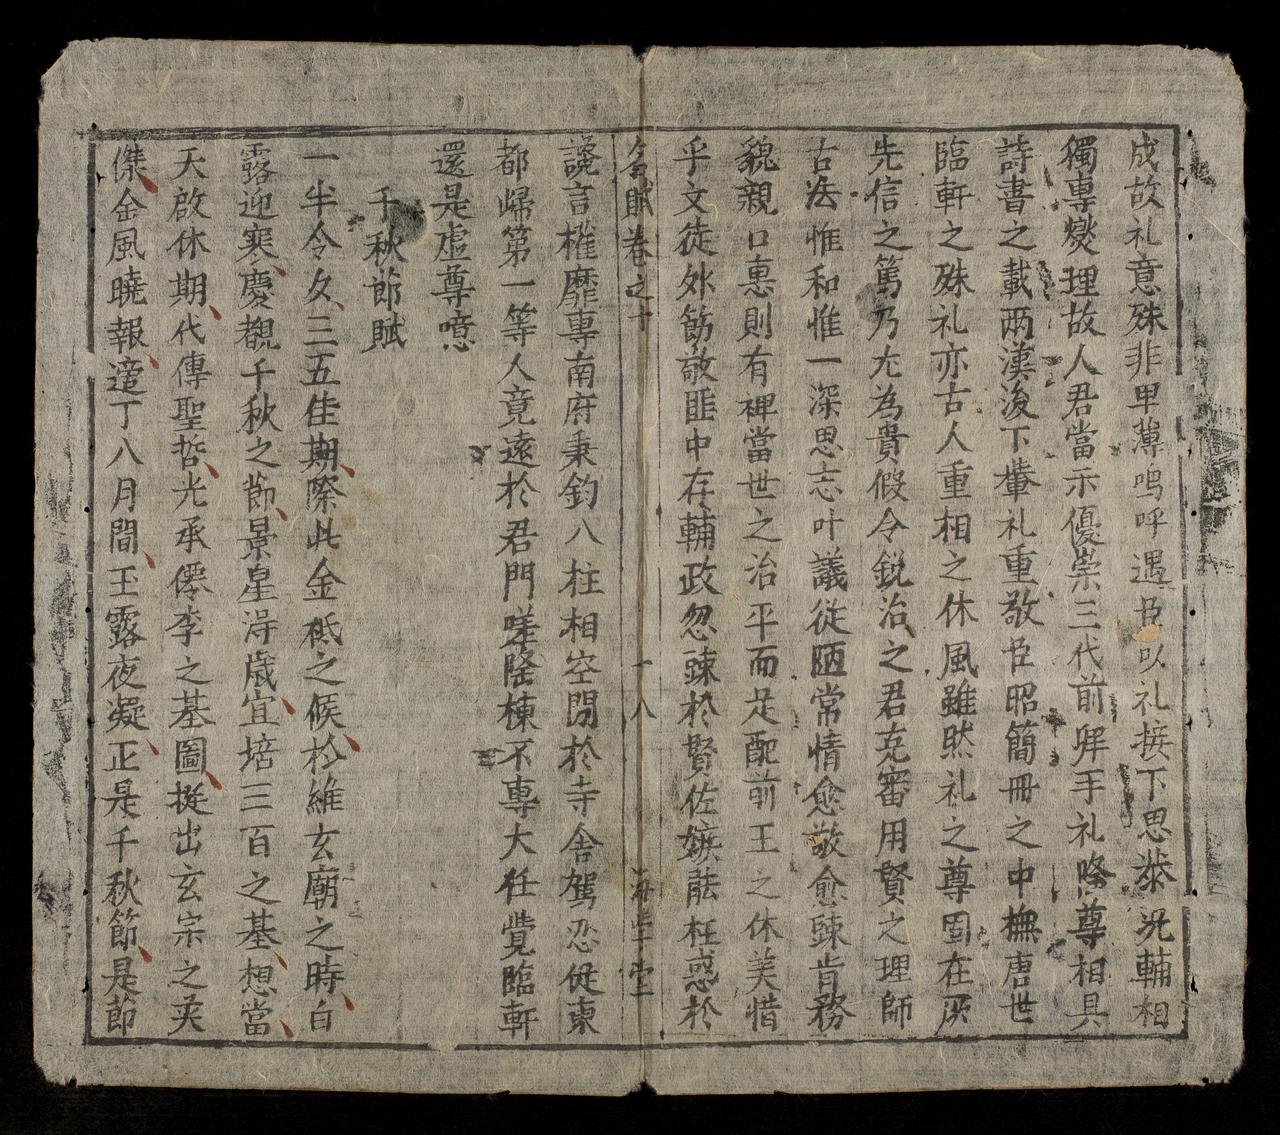 成故礼意殊非畀薄嗚呼遇臣以礼接下思恭况輔相
獨專燮理故人君當示優崇三代前辟手礼隆尊相具
詩書之載兩漢後下輦礼重敬臣昭簡冊之中撫唐世
臨軒之殊礼亦古人重相之休風雖然礼之尊固在厥
先信之篤乃尤為貴假令銳治之君克審用賢之理師
古法惟和惟一深思忘叶議從陋常情愈敬愈踈肯務
貌親口惠則有裨當世之治平而足配前王之休美惜
乎文徒外飭敬匪中存輔政忽踈於賢佐嫉能枉惑於
名賦卷之十 一八 海學堂
讒言權靡專南府秉鈞八柱相空閒於寺舍駕忍促東
都歸第一等人竟遠於君門嗟隆棟不專大任覺臨軒
還是虛尊噫
千秋節賦
一半令久三五佳期際此金祗之候於維玄廟之時白
露迎寒慶覩千秋之節景星淂歲宜培三百之基想當
天啟休期代傳聖哲光承僊李之基圖挺出玄宗之英
傑金風曉報適丁八月間玉露夜凝正是千秋節是節